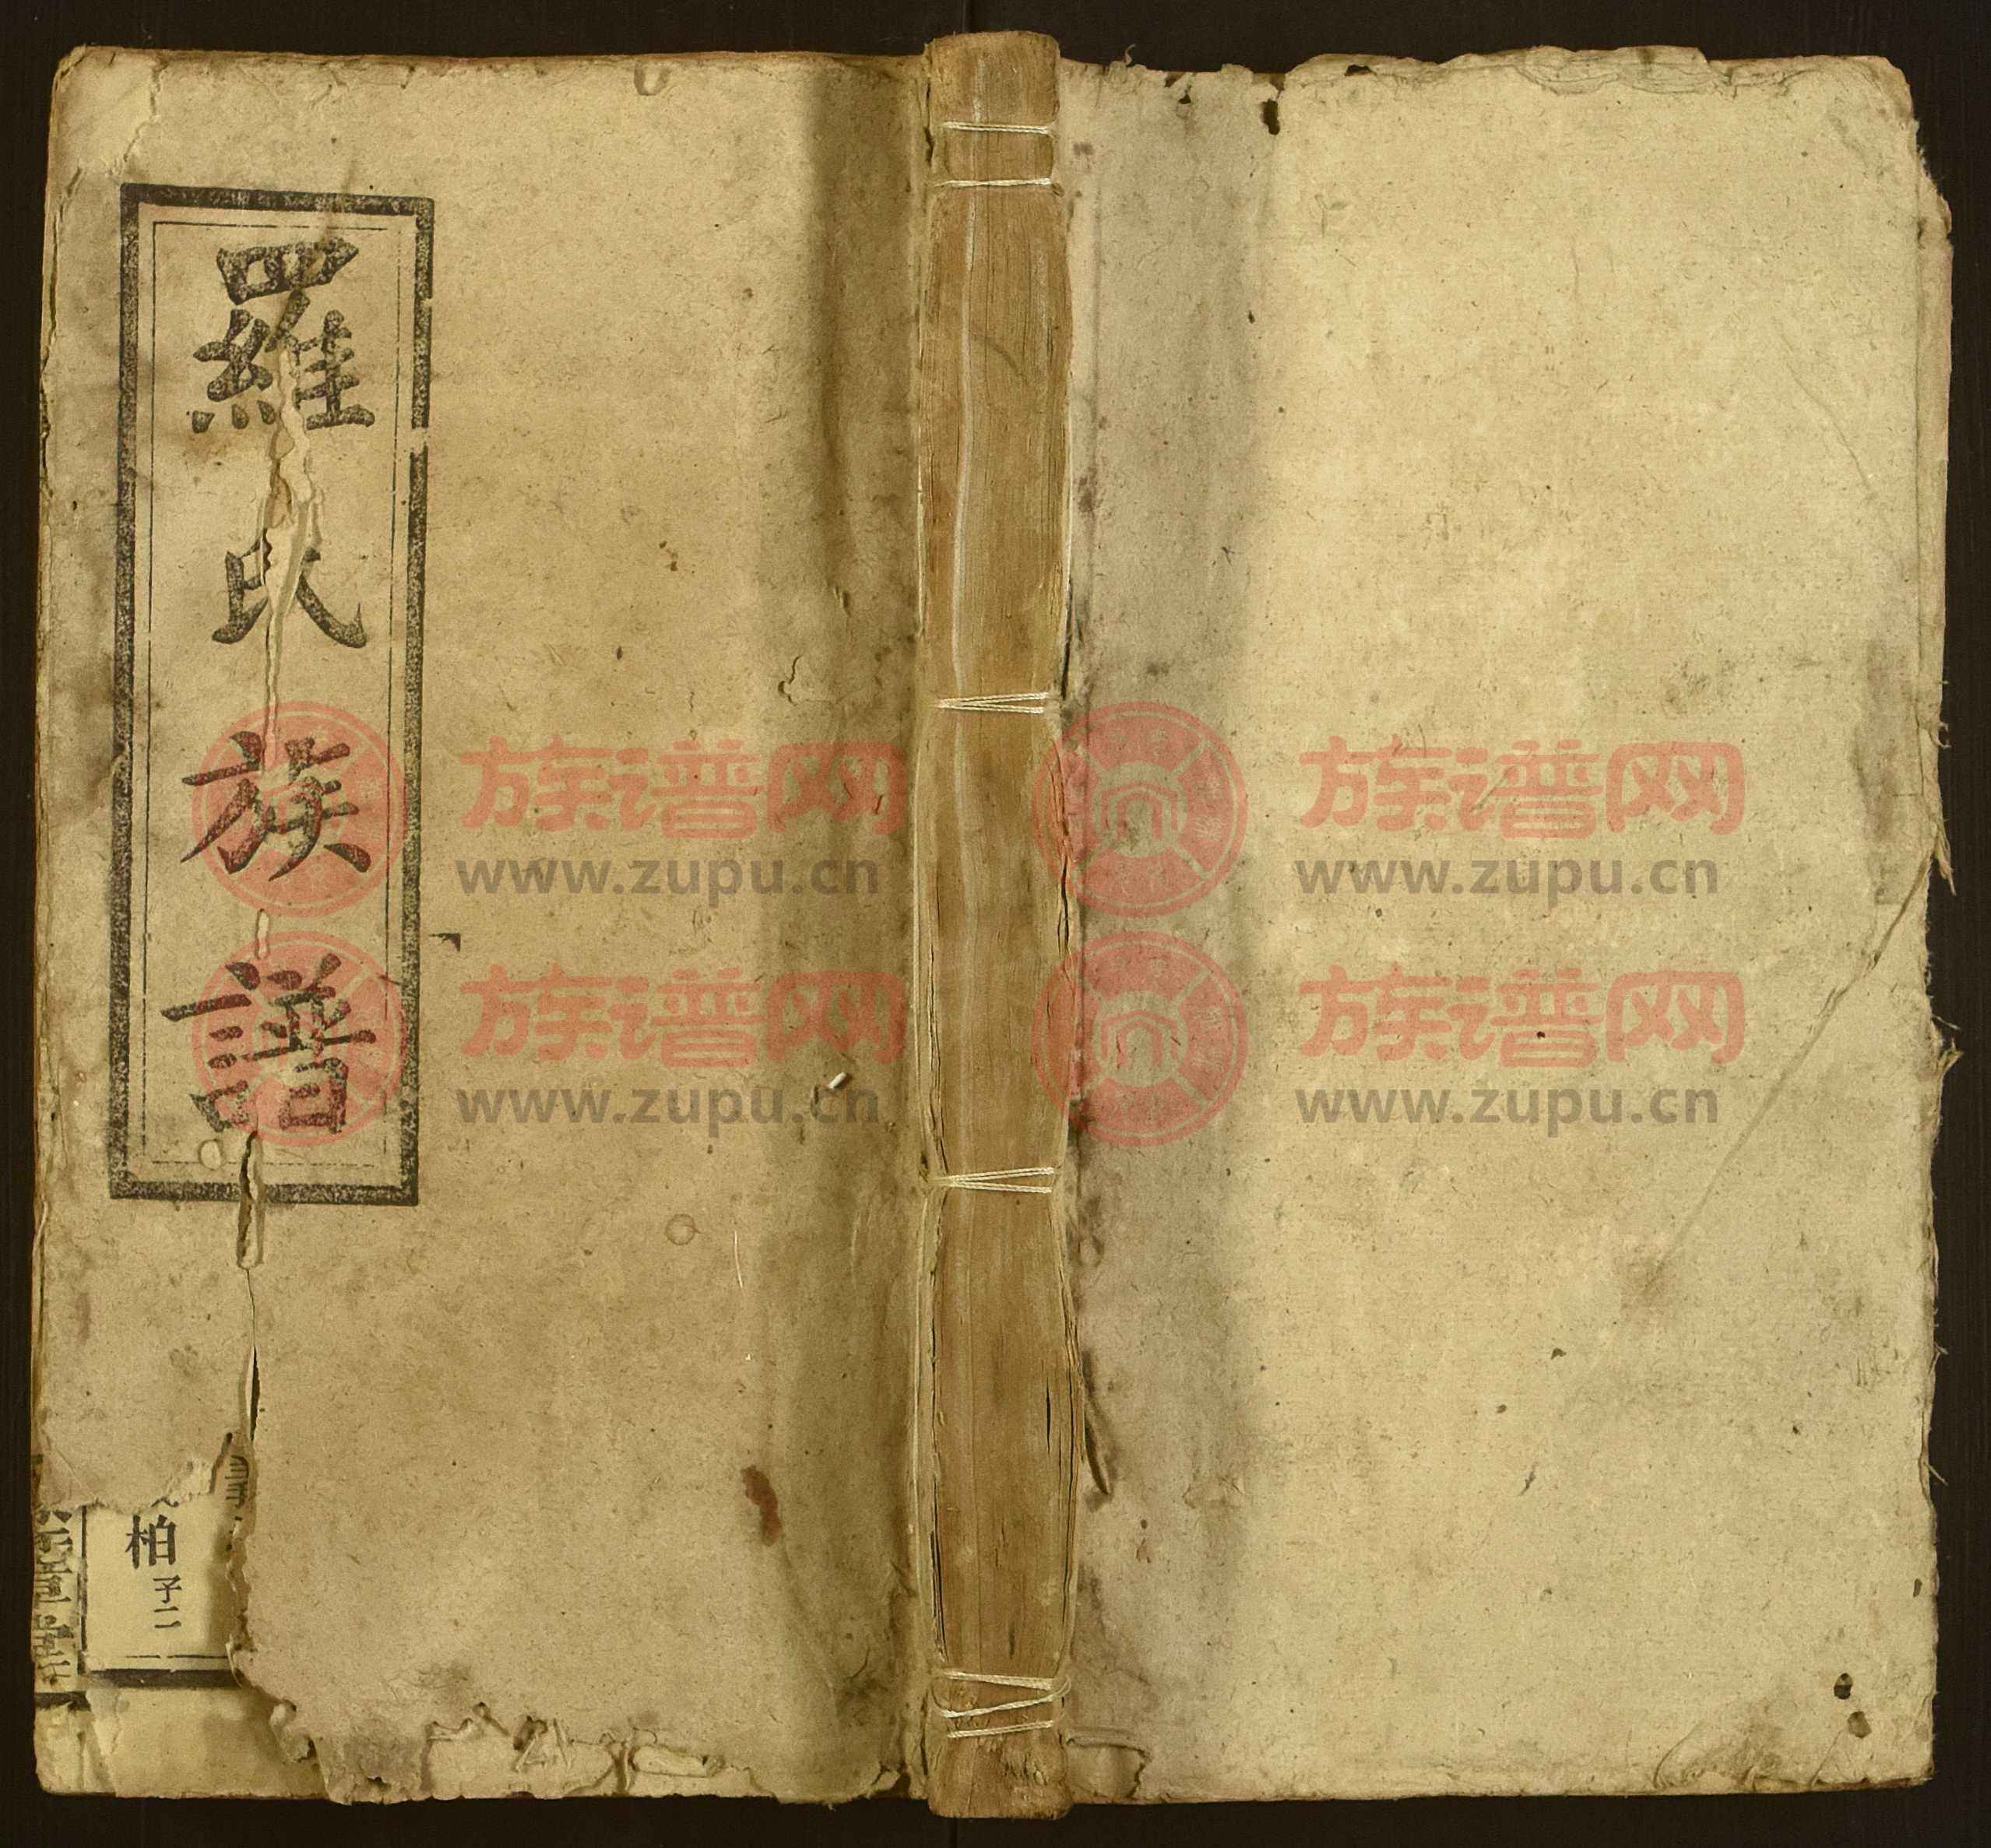 羅氏族譜
柏
子二
族谱网
www.zupu.cn
族谱网
www.zupu.cn
族谱网
www.zupu.cn
族谱网
www.zupu.cn